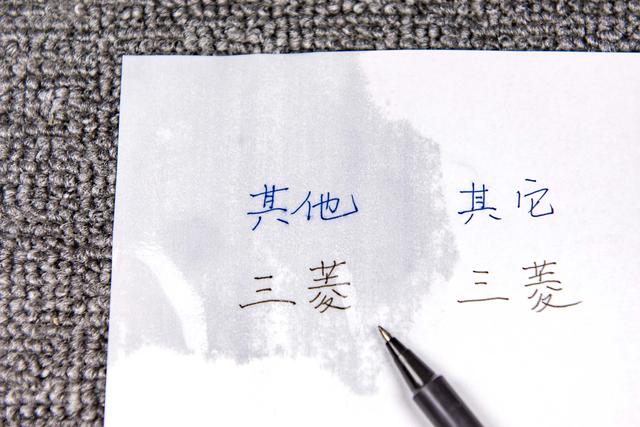 其他 其它
三菱 三菱